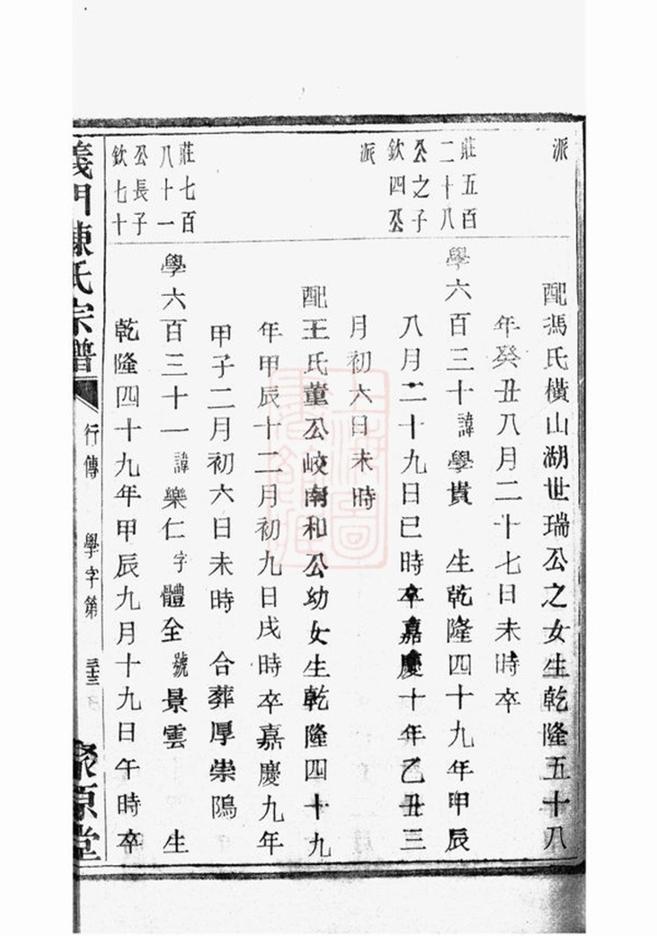 派
配馮氏橫山湖世瑞公之女生乾隆五十八
年癸丑八月二十七日未時卒
莊五百
二十八
公之子
欽四公
學六百三十諱學貴 生乾隆四十九年甲辰
八月二十九日巳時卒嘉慶十年乙丑三
派
月初六日未時
配王氏董公峧南和公幼女生乾隆四十九
年甲辰十二月初九日戌時卒嘉慶九年
甲子二月初六日未時 合葬厚崇隝
莊七百
八十一
公長子
欽七十
學六百三十一諱樂仁字體全號景雲 生
乾隆四十九年甲辰九月十九日午時卒
義門陳氏宗譜
行傳 學字第
聚原堂